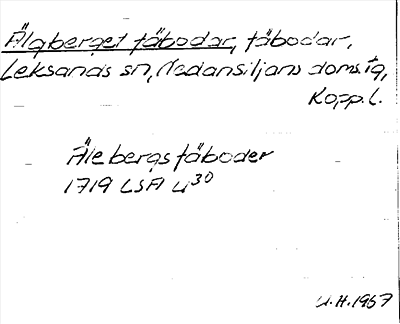 Älgberget fäbodar, fäbodar,
Leksands sn, Nedansiljans doms.tg,
Kopp.l.
Älebergs fäboder
1719 LSA U30
U.H.1967